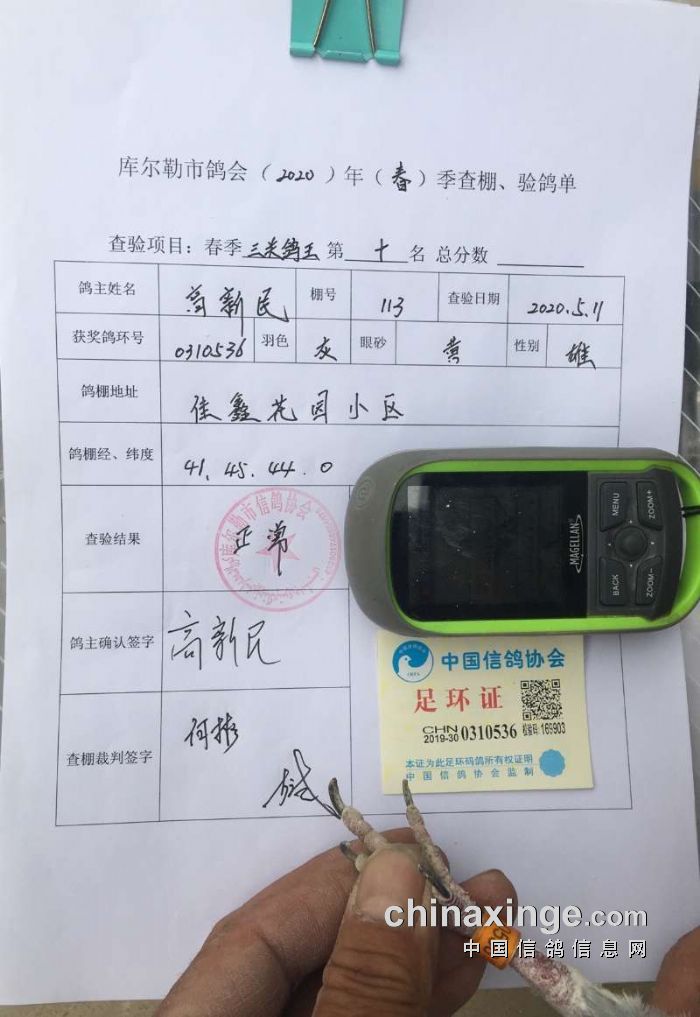 库尔勒市鸽会（2020）年（春）季查棚、验鸽单
查验项目：春季 三关鸽王 第 十 名 总分数
鸽主姓名 高新民 棚号 113 查验日期 2020.5.11
获奖鸽环号 0310536 羽色 灰 眼砂 黄 性别 雄
鸽棚地址 佳鑫花园小区
鸽棚经、纬度 41.45.44.0
查验结果 正常
库尔勒市信鸽协会
鸽主确认签字 高新民
查棚裁判签字 何彬
MAGELLAN
MENU
ZOOM+
BACK
ZOOM-
中国信鸽协会
足环证
CHN
2019-30 0310536 校验码:169903
本证为此足环码鸽所有权证明
中国信鸽协会监制
chinaxinge.com
中国信鸽信息网